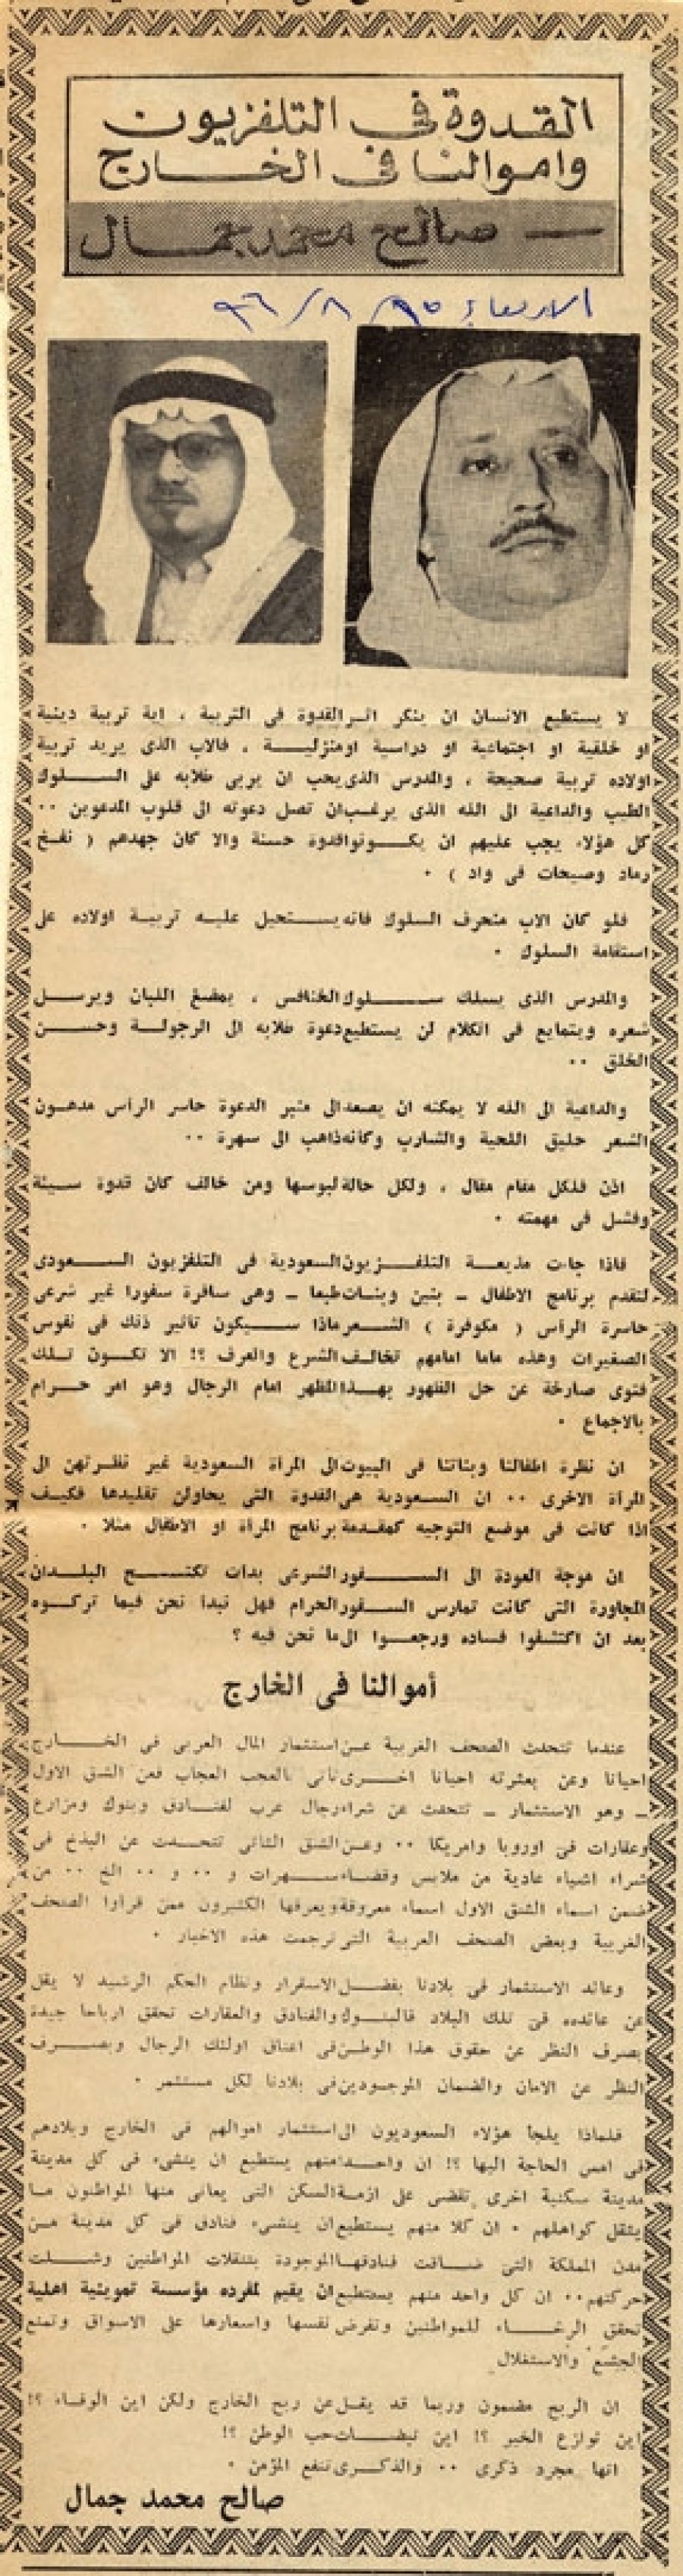 القدوة في التلفزيون
واموالنا في الخارج
— صالح محمد جمال
الاربعاء ٩٦/٨/٢٥
لا يستطيع الانسان ان ينكر اثر القدوة فى التربية ، اية تربية دينية
او خلقية او اجتماعية او دراسية او منزلية ، فالاب الذى يريد تربية
اولاده تربية صحيحة ، والمدرس الذى يحب ان يربى طلابه على السلوك
الطيب والداعية الى الله الذى يرغب ان تصل دعوته الى قلوب المدعوين ..
كل هؤلاء يجب عليهم ان يكونوا قدوة حسنة والا كان جهدهم ( نفخ
رماد وصيحات فى واد ) .
فلو كان الاب منحرف السلوك فانه يستحيل عليه تربية اولاده على
استقامة السلوك .
والمدرس الذى يسلك سلوك الخنافس ، يمضغ اللبان ويرسل
شعره ويتمايع فى الكلام لن يستطيع دعوة طلابه الى الرجولة وحسن
الخلق ..
والداعية الى الله لا يمكنه ان يصعد الى منبر الدعوة حاسر الرأس مدهون
الشعر حليق اللحية والشارب وكأنه ذاهب الى سهرة ..
اذن فلكل مقام مقال ، ولكل حالة لبوسها ومن خالف كان قدوة سيئة
وفشل فى مهمته .
فاذا جاءت مذيعة التلفزيون السعودية فى التلفزيون السعودى
لتقدم برنامج الاطفال ـ بنين وبنات طبعا ـ وهى سافرة سفورا غير شرعى
حاسرة الرأس ( مكوفرة ) الشعر ماذا سيكون تأثير ذلك فى نفوس
الصغيرات وهذه ماما امامهم تخالف الشرع والعرف ؟! الا تكون تلك
فتوى صارخة عن حل الظهور بهذا المظهر امام الرجال وهو امر حرام
بالاجماع .
ان نظرة اطفالنا وبناتنا فى البيوت الى المرأة السعودية غير نظرتهن الى
المرأة الاخرى .. ان السعودية هى القدوة التى يحاولن تقليدها فكيف
اذا كانت فى موضع التوجيه كمقدمة برنامج المرأة او الاطفال مثلا .
ان موجة العودة الى السفور الشرعى بدأت تكتسح البلدان
المجاورة التى كانت تمارس السفور الحرام فهل نبدأ نحن فيما تركوه
بعد ان اكتشفوا فساده ورجعوا الى ما نحن فيه ؟
أموالنا فى الخارج
عندما تتحدث الصحف الغربية عن استثمار المال العربى فى الخارج
احيانا وعن بعثرته احيانا اخرى تأتى بالعجب العجاب فعن الشق الاول
ـ وهو الاستثمار ـ تتحدث عن شراء رجال عرب لفنادق وبنوك ومزارع
وعقارات فى اوروبا وامريكا .. وعن الشق الثانى تتحدث عن البذخ فى
شراء اشياء عادية من ملابس وقضاء سهرات و .. و .. الخ .. من
ضمن اسماء الشق الاول اسماء معروفة ويعرفها الكثيرون ممن قرأوا الصحف
الغربية وبعض الصحف العربية التى ترجمت هذه الاخبار .
وعائد الاستثمار فى بلادنا بفضل الاستقرار ونظام الحكم الرشيد لا يقل
عن عائده فى تلك البلاد فالبنوك والفنادق والعقارات تحقق ارباحا جيدة
بصرف النظر عن حقوق هذا الوطن فى اعناق اولئك الرجال وبصرف
النظر عن الامان والضمان الموجودين فى بلادنا لكل مستثمر .
فلماذا يلجأ هؤلاء السعوديون الى استثمار اموالهم فى الخارج وبلادهم
فى امس الحاجة اليها ؟! ان واحدا منهم يستطيع ان ينشىء فى كل مدينة
مدينة سكنية اخرى تقضى على ازمة السكن التى يعانى منها المواطنون ما
يثقل كواهلهم . ان كلا منهم يستطيع ان ينشىء فنادق فى كل مدينة من
مدن المملكة التى ضاقت فنادقها الموجودة بتنقلات المواطنين وشلت
حركتهم .. ان كل واحد منهم يستطيع ان يقيم لمفرده مؤسسة تموينية اهلية
تحقق الرخاء للمواطنين وتفرض نفسها واسعارها على الاسواق وتمنع
الجشع والاستغلال
ان الربح مضمون وربما قد يقل عن ربح الخارج ولكن اين الوفاء ؟!
اين نوازع الخير ؟! اين نبضات حب الوطن ؟!
انها مجرد ذكرى .. والذكرى تنفع المؤمن .
صالح محمد جمال